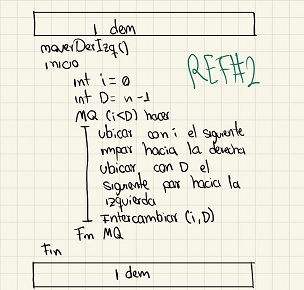 1 dem
moverDerIzq()
inicio
REF#2
int i = 0
int D = n-1
MQ (i<D) hacer
ubicar con i el siguiente
impar hacia la derecha
ubicar con D el
siguiente par hacia la
izquierda
Intercambiar (i,D)
Fin MQ
Fin
1 dem